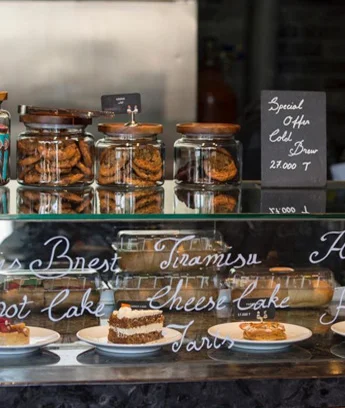 Special
Offer
Cold
Brew
27.000 T
s Brest Tiramisu
ot Cake Cheese Cake
Tarts